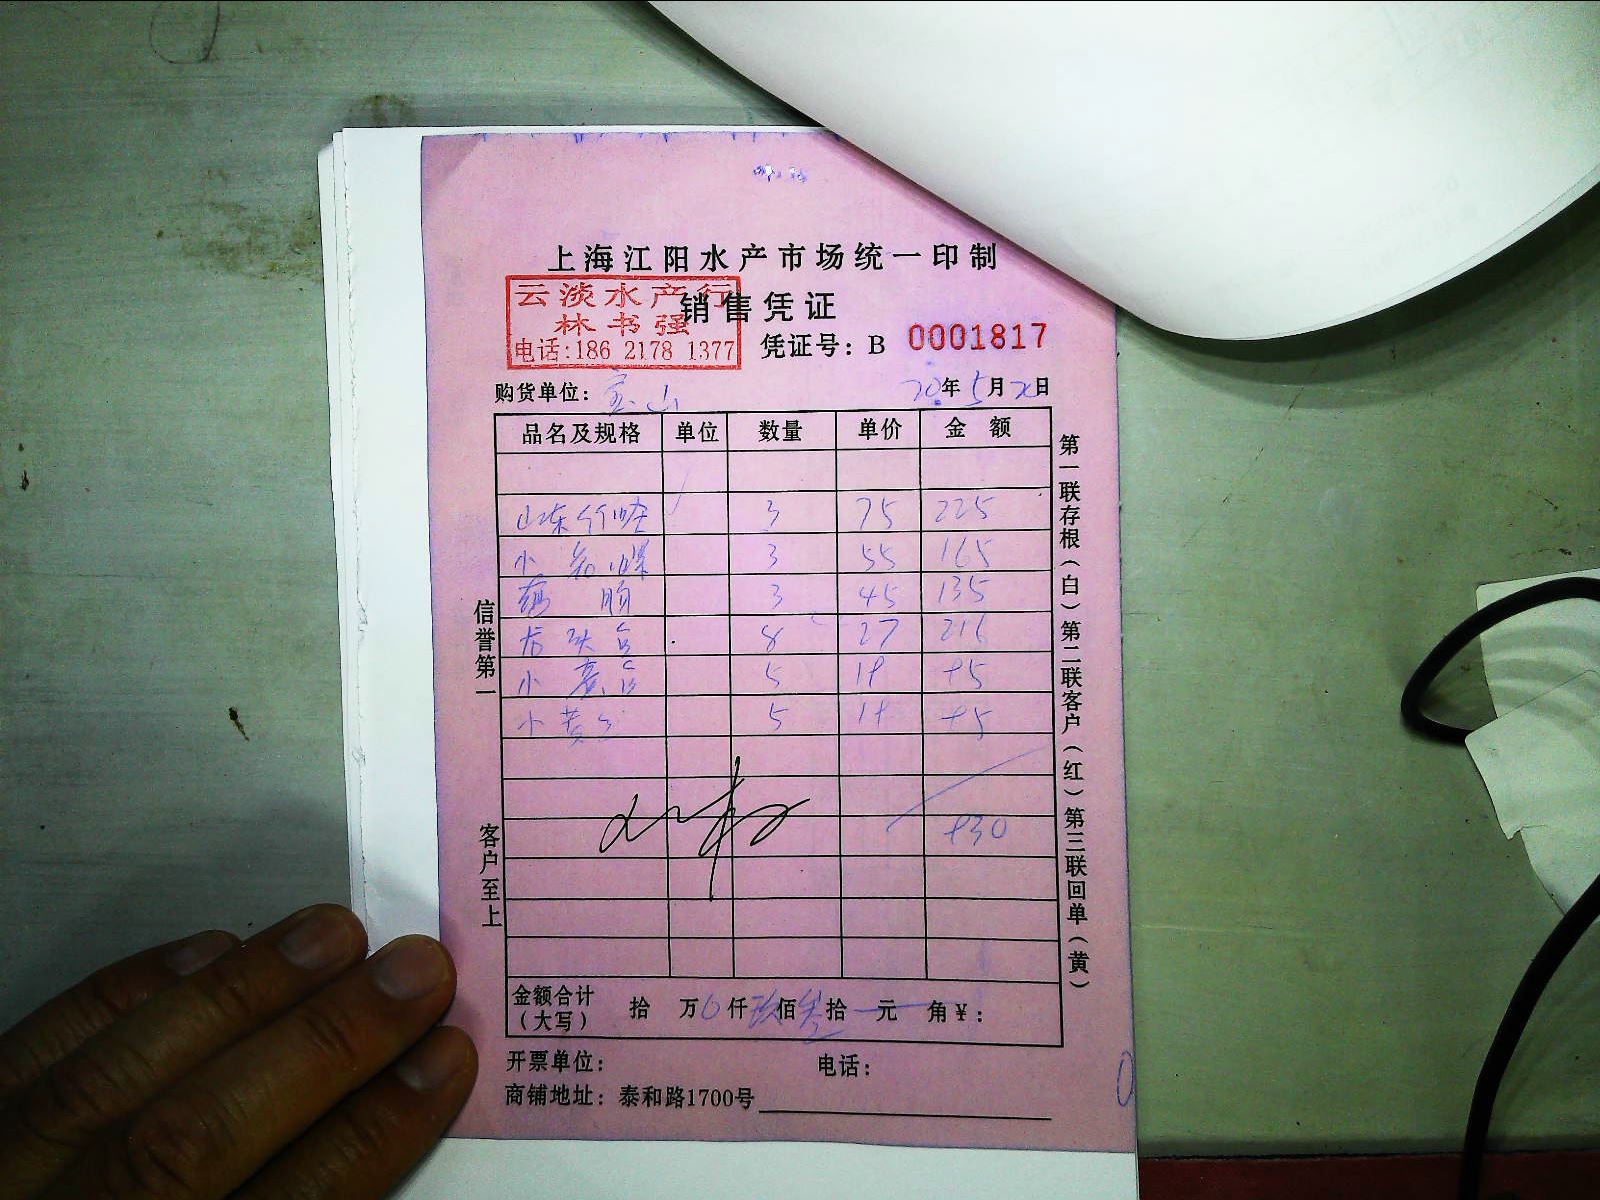 上海江阳水产市场统一印制
销售凭证
云淡水产行
林书强
电话:186 2178 1377
凭证号: B 0001817
购货单位: 宝山 20年5月20日
品名及规格 单位 数量 单价 金额
山东竹蛏 3 75 225
小 3 55 165
3 45 135
龙头 8 27 216
小 5 19 95
小黄 5 19 95
930
金额合计(大写) 拾 万 0 仟 玖 佰 叁 拾 元 角 ¥:
开票单位: 电话:
商铺地址: 泰和路1700号
信誉第一
客户至上
第一联存根(白)第二联客户(红)第三联回单(黄)